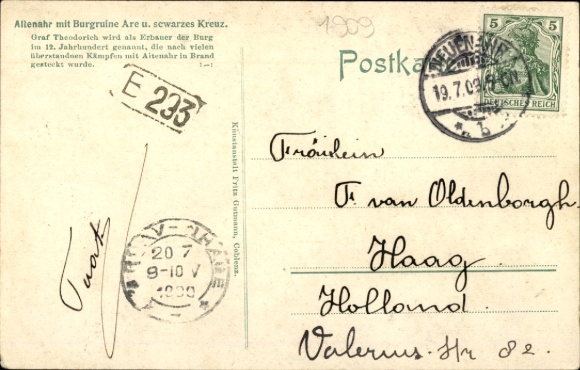 Altenahr mit Burgruine Are u. scwarzes Kreuz.
Graf Theodorich wird als Erbauer der Burg
im 12. Jahrhundert genannt, die nach vielen
überstandnen Kämpfen mit Altenahr in Brand
gesteckt wurde. :—:
1909
Postka
5 5
DEUTSCHES REICH
19.7.09.
* b
E 233
Kunstanstalt Fritz Gutmann, Coblenz.
Fräulein
F. van Oldenborgh.
Haag
Holland.
Valerius
82.
20 7
9-10 V
1909